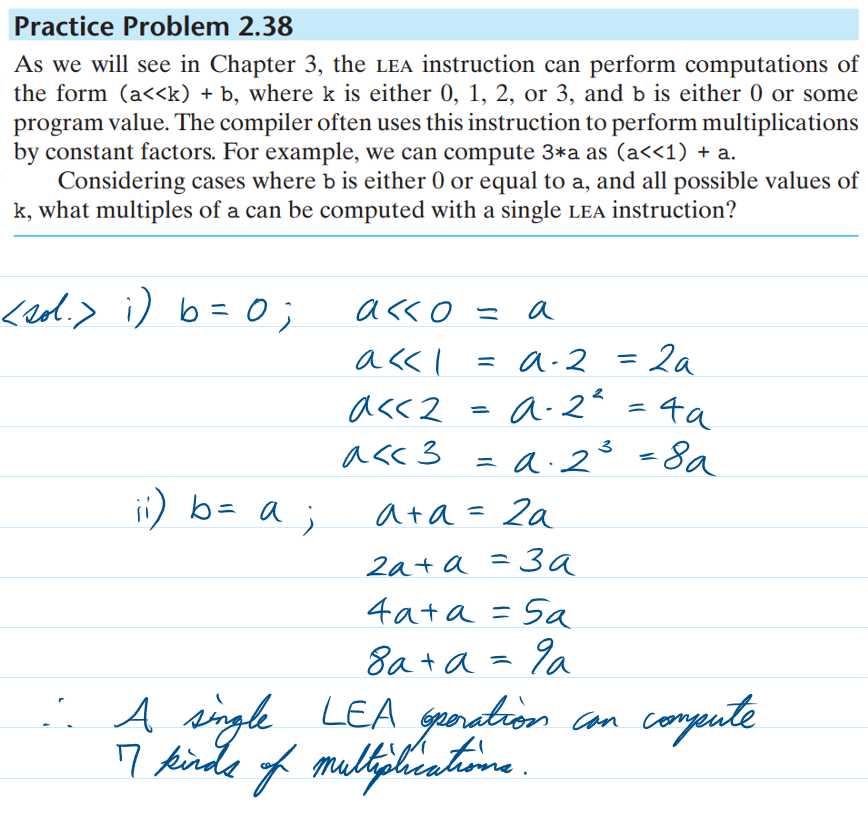 Practice Problem 2.38
As we will see in Chapter 3, the LEA instruction can perform computations of
the form (a<<k) + b, where k is either 0, 1, 2, or 3, and b is either 0 or some
program value. The compiler often uses this instruction to perform multiplications
by constant factors. For example, we can compute 3*a as (a<<1) + a.
Considering cases where b is either 0 or equal to a, and all possible values of
k, what multiples of a can be computed with a single LEA instruction?
<sol.> i) b = 0 ; a<<0 = a
a<<1 = a·2 = 2a
a<<2 = a·2² = 4a
a<<3 = a·2³ = 8a
ii) b = a ; a+a = 2a
2a+a = 3a
4a+a = 5a
8a+a = 9a
∴ A single LEA operation can compute
7 kinds of multiplications.